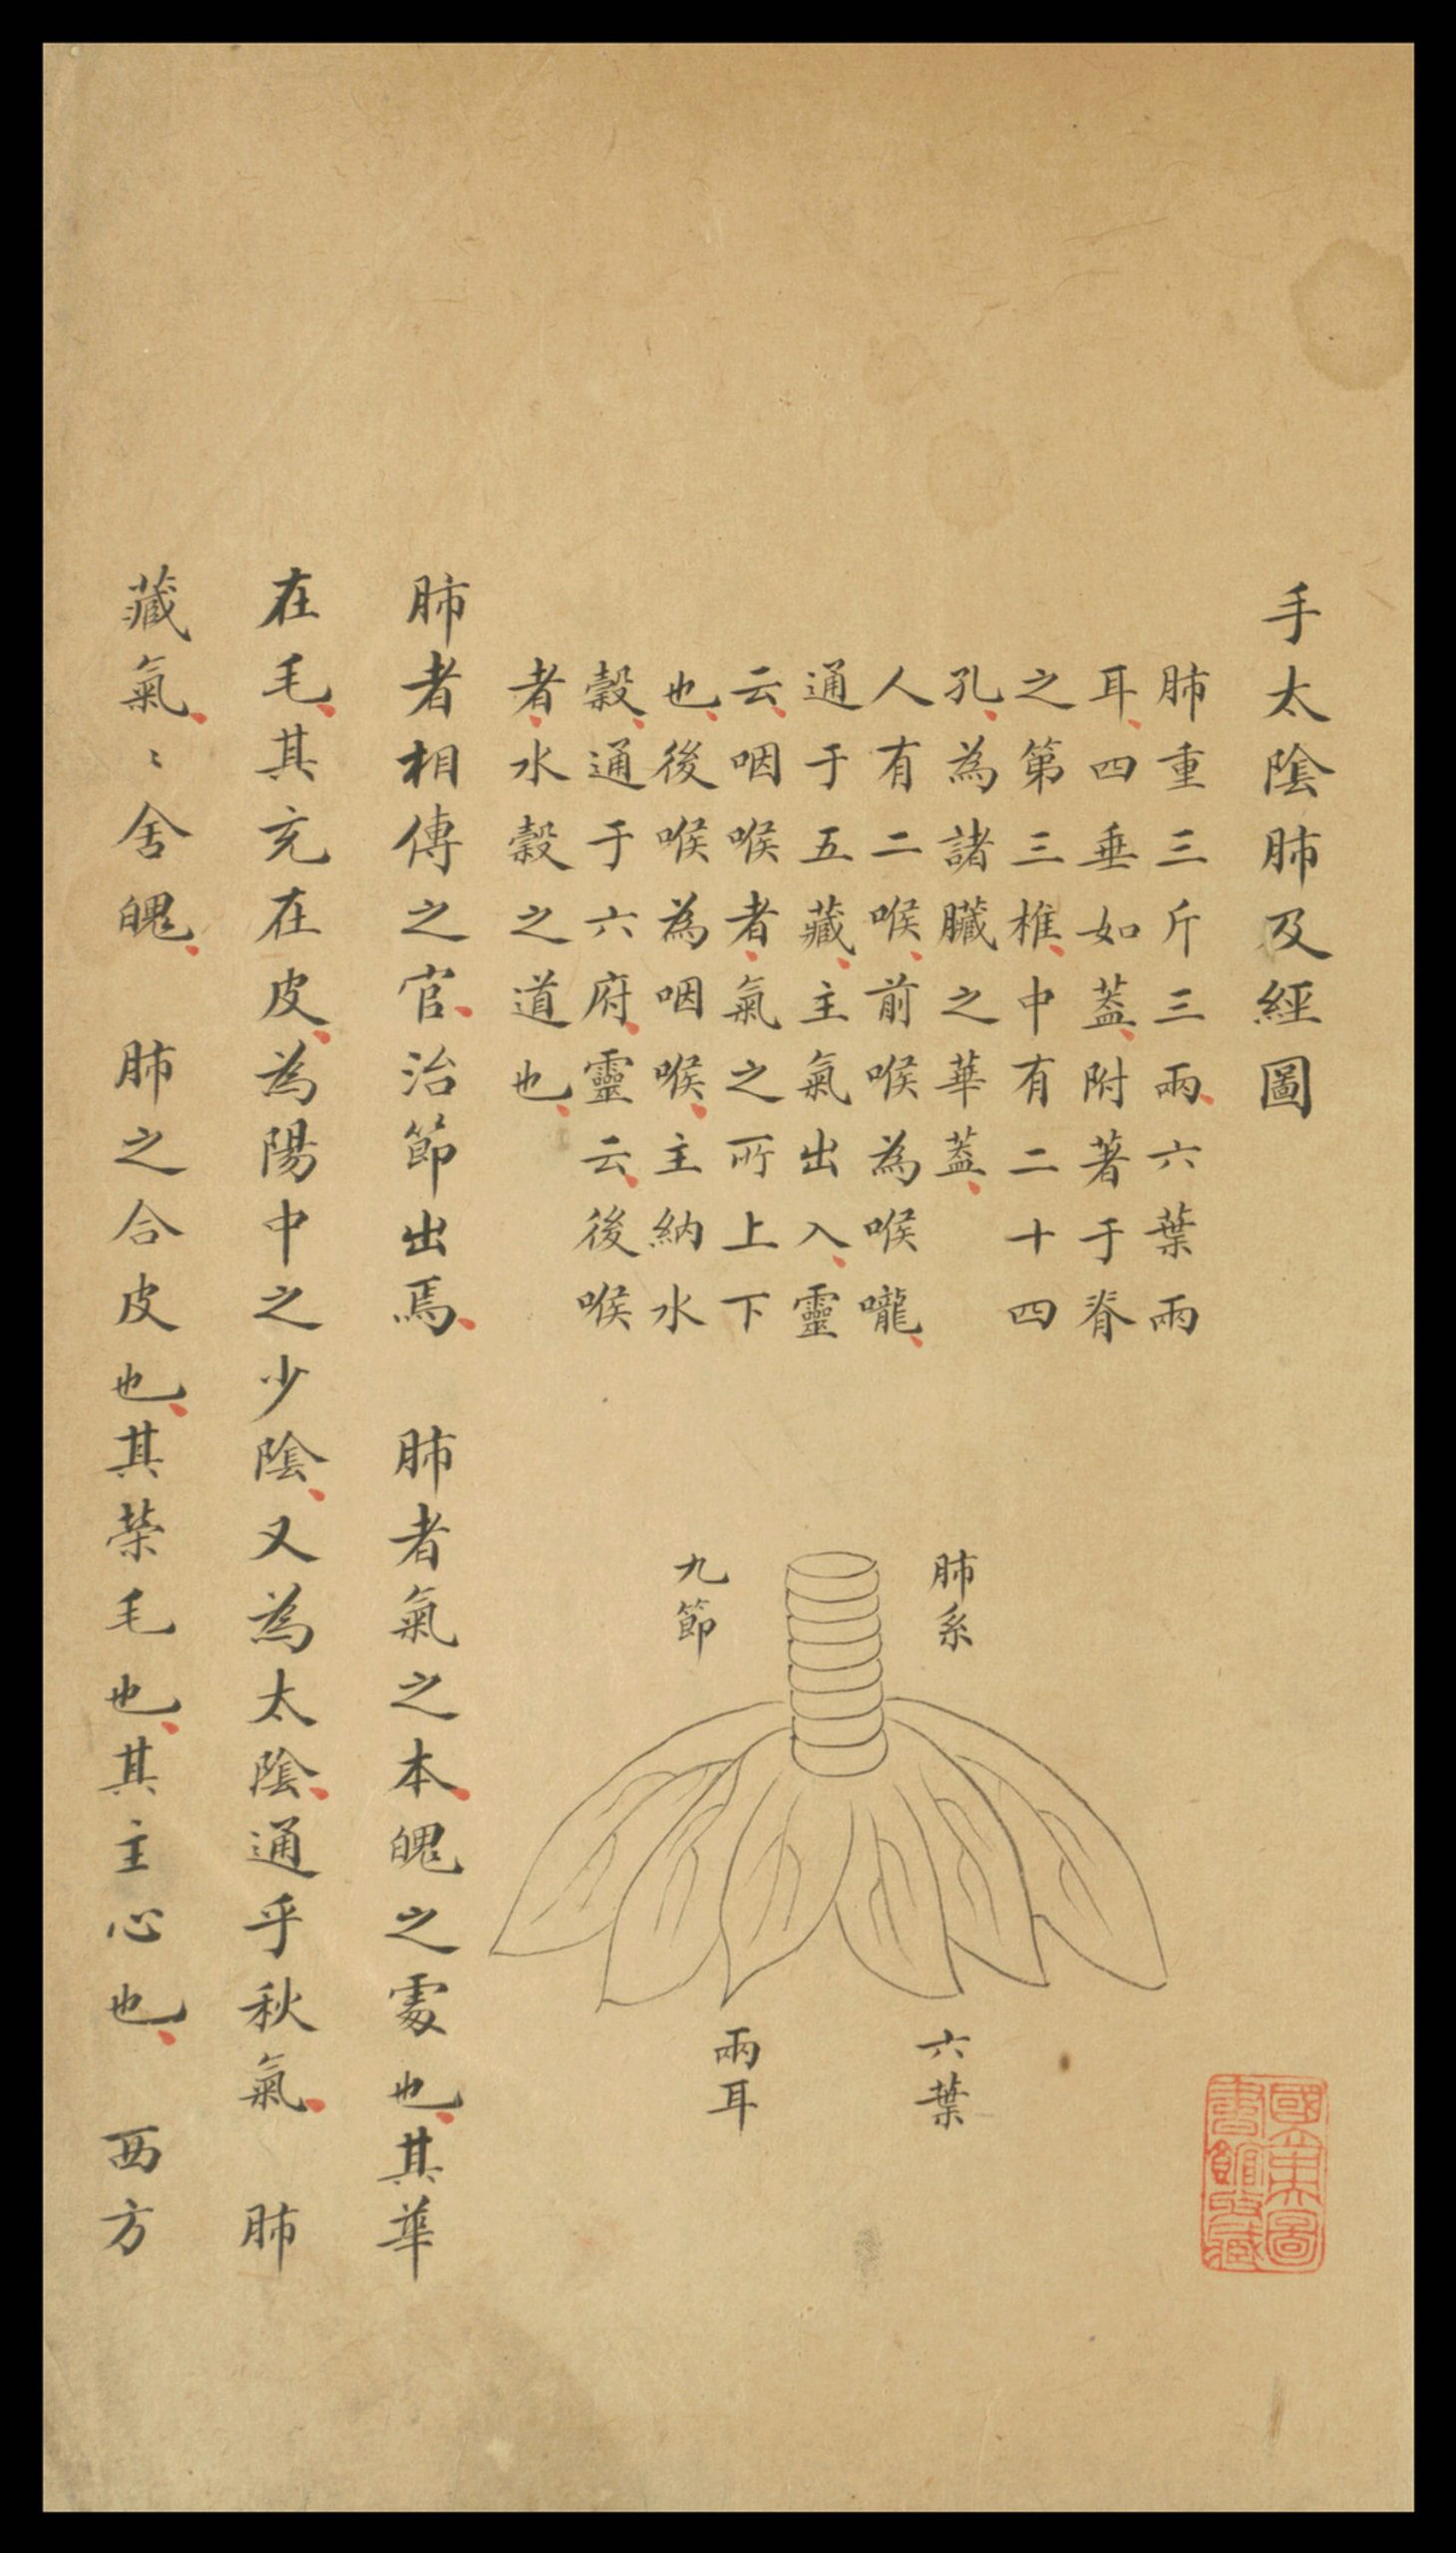 手太陰肺及經圖
肺重三斤三兩六葉兩
耳四垂如蓋附著于脊
之第三椎中有二十四
孔為諸臟之華蓋
人有二喉前喉為喉嚨
通于五藏主氣出入靈
云咽喉者氣之所上下
也後喉為咽喉主納水
穀通于六府靈云後喉
者水穀之道也
肺者相傳之官治節出焉 肺者氣之本魄之處也其華
在毛其充在皮為陽中之少陰又為太陰通乎秋氣 肺
藏氣〻舍魄 肺之合皮也其榮毛也其主心也 西方
肺系
九節
六葉
兩耳
國第圖
書館收藏